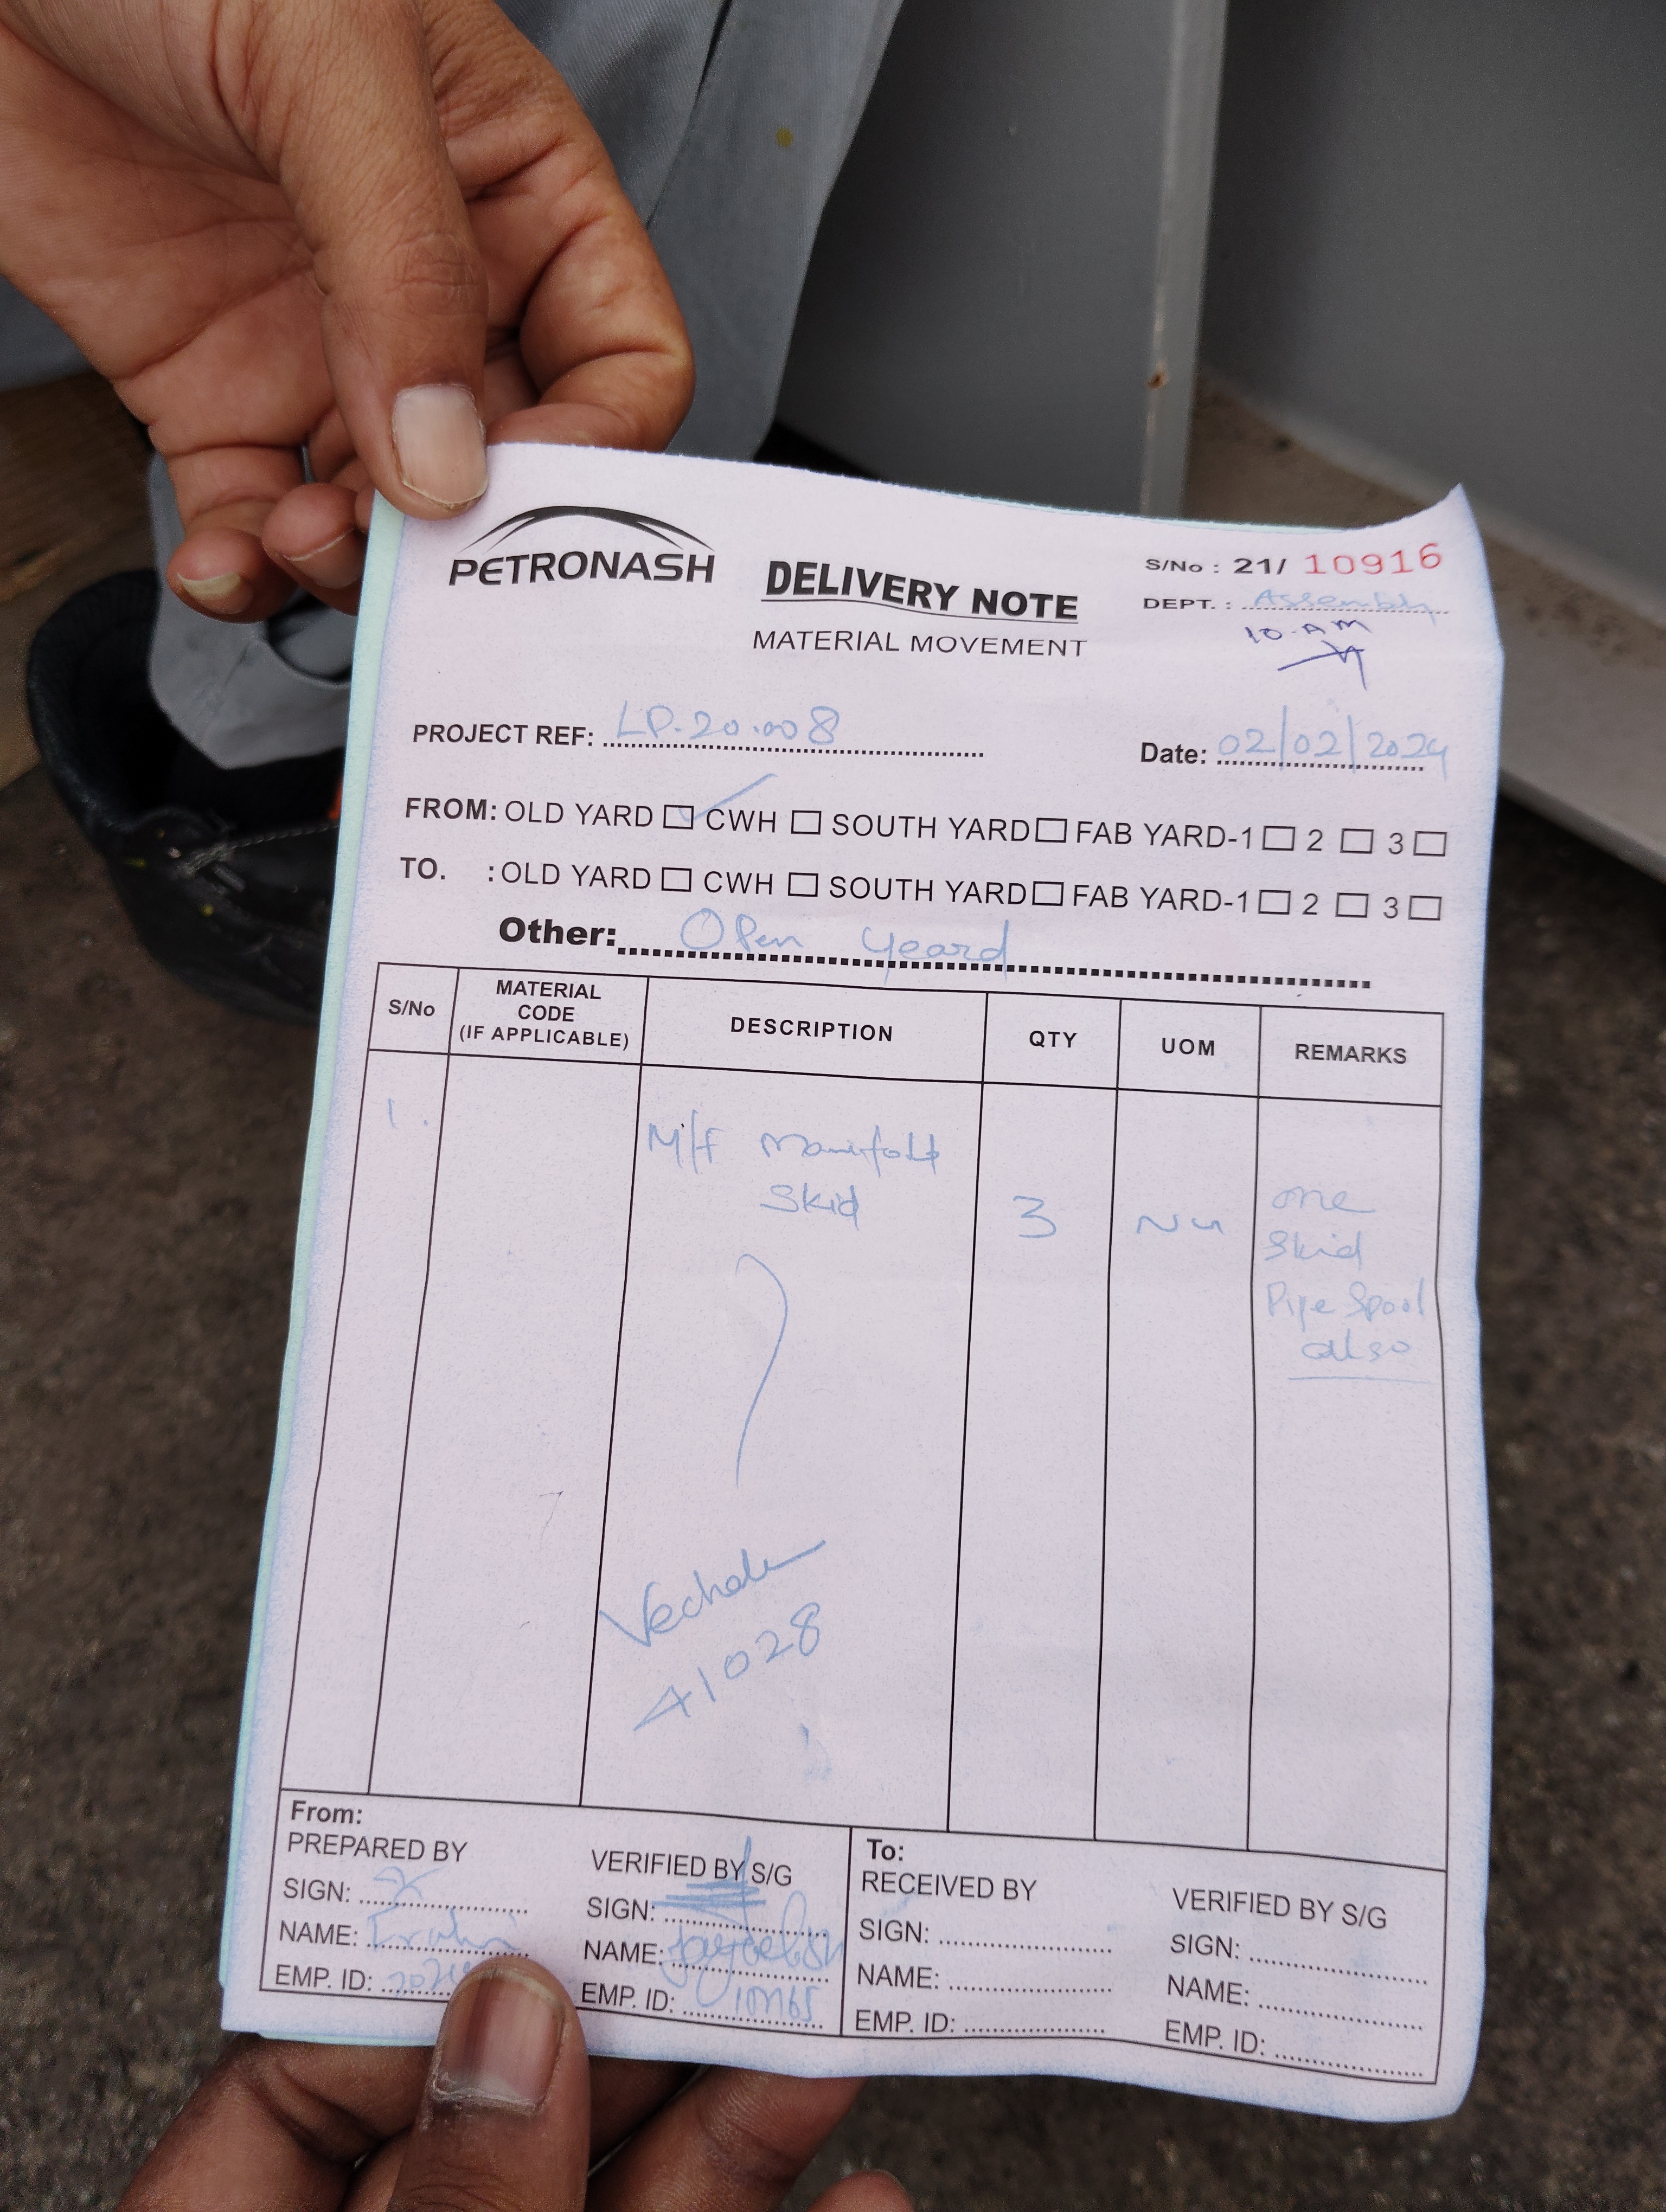 PETRONASH
DELIVERY NOTE
MATERIAL MOVEMENT
S/No : 21/ 10916
DEPT. : Assembly
10 AM
PROJECT REF: LP.20.008
Date: 02/02/2024
FROM: OLD YARD CWH SOUTH YARD FAB YARD-1 2 3
TO. : OLD YARD CWH SOUTH YARD FAB YARD-1 2 3
Other: Open Yeard
S/No MATERIAL CODE (IF APPLICABLE) DESCRIPTION QTY UOM REMARKS
1. M/f Manifold Skid 3 Nu one Skid Pipe Spool also
41028
From:
PREPARED BY
SIGN:
NAME:
EMP. ID:
VERIFIED BY S/G
SIGN:
NAME:
EMP. ID:
To:
RECEIVED BY
SIGN:
NAME:
EMP. ID:
VERIFIED BY S/G
SIGN:
NAME:
EMP. ID: